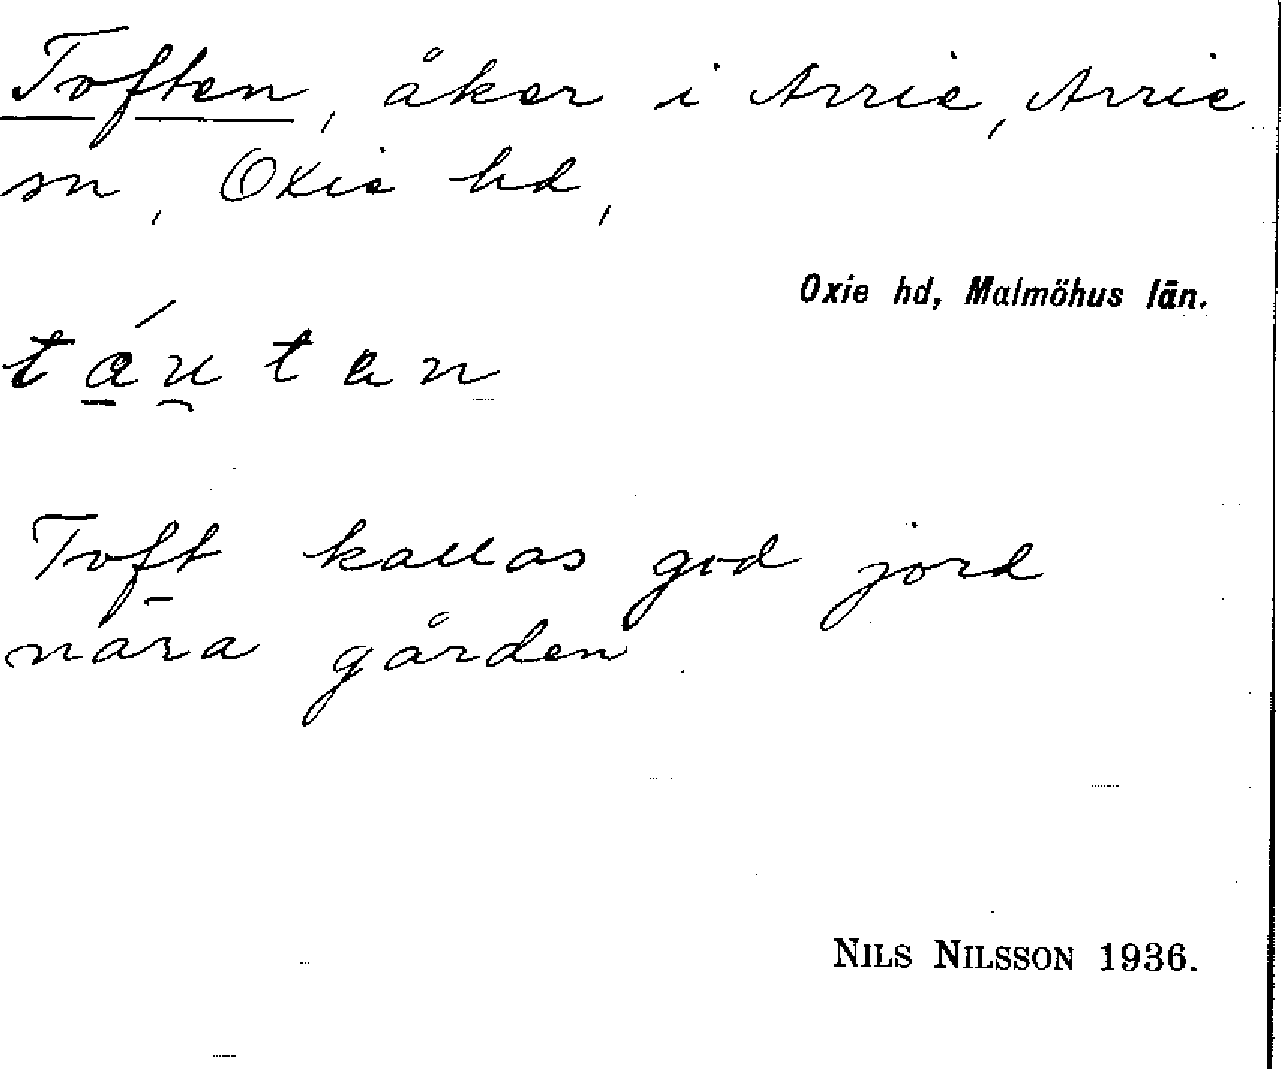 Toften, åker i Arrie, Arrie
sn, Oxie hd,
Oxie hd, Malmöhus län.
tá̱u̯tan
Toft kallas god jord
nära gården
NILS NILSSON 1936.